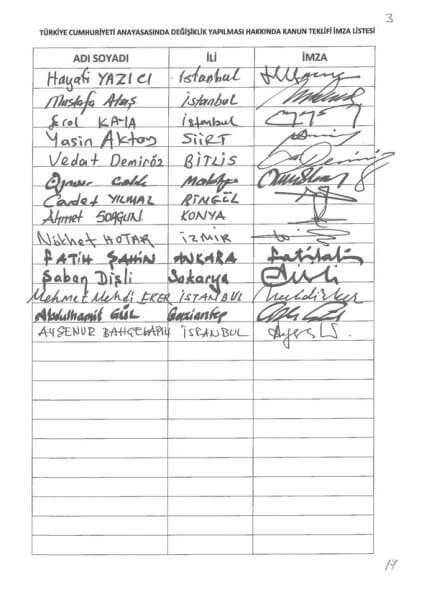 3
TÜRKİYE CUMHURİYETİ ANAYASASINDA DEĞİŞİKLİK YAPILMASI HAKKINDA KANUN TEKLİFİ İMZA LİSTESİ
ADI SOYADI İLİ İMZA
Hayati YAZICI İstanbul
Mustafa Ataş İstanbul
Erol KAYA İstanbul
Yasin Aktay SİİRT
Vedat Demiröz BİTLİS
Öznur Çalık Malatya
Cevdet YILMAZ BİNGÖL
Ahmet SORGUN KONYA
Nükhet HOTAR İZMİR
FATİH ŞAHİN ANKARA Fatih
Şaban Dişli Sakarya
Mehmet Mehdi EKER İSTANBUL
Abdulhamit GÜL Gaziantep
AYŞENUR BAHÇEKAPILI İSTANBUL
14